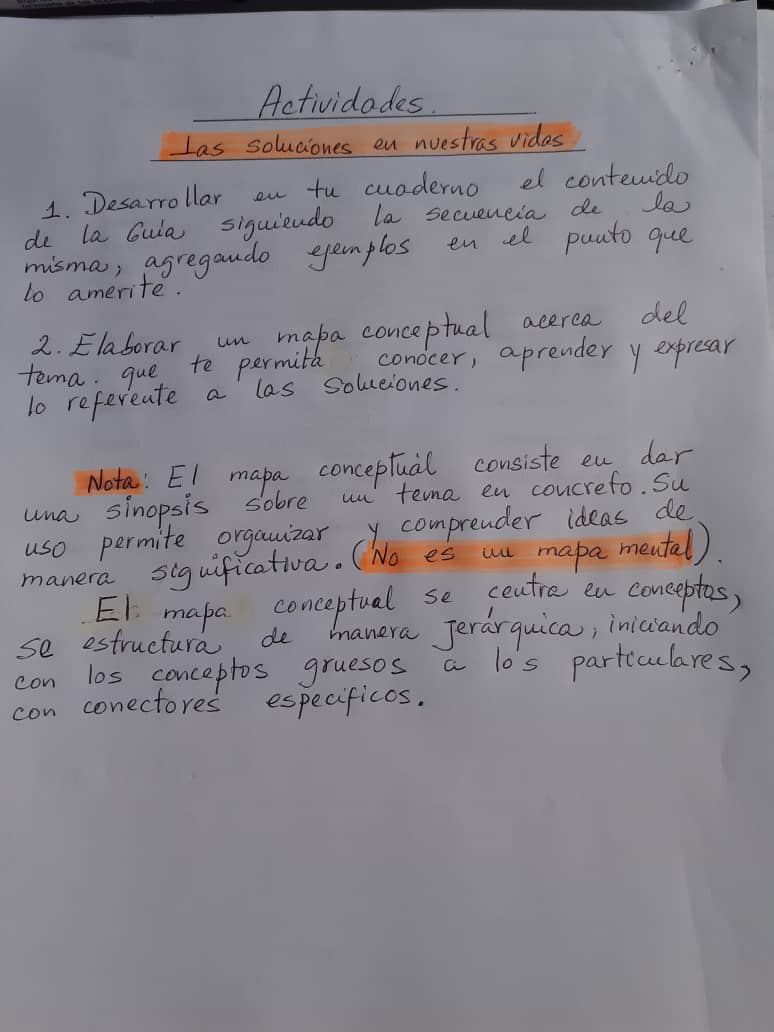 Actividades.
Las soluciones en nuestras vidas
1. Desarrollar en tu cuaderno el contenido
de la Guía siguiendo la secuencia de la
misma, agregando ejemplos en el punto que
lo amerite.
2. Elaborar un mapa conceptual acerca del
tema. que te permita conocer, aprender y expresar
lo referente a las soluciones.
Nota: El mapa conceptual consiste en dar
una sinopsis sobre un tema en concreto. Su
uso permite organizar y comprender ideas de
manera significativa. (No es un mapa mental).
El mapa conceptual se centra en conceptos,
se estructura de manera jerárquica, iniciando
con los conceptos gruesos a los particulares,
con conectores específicos.